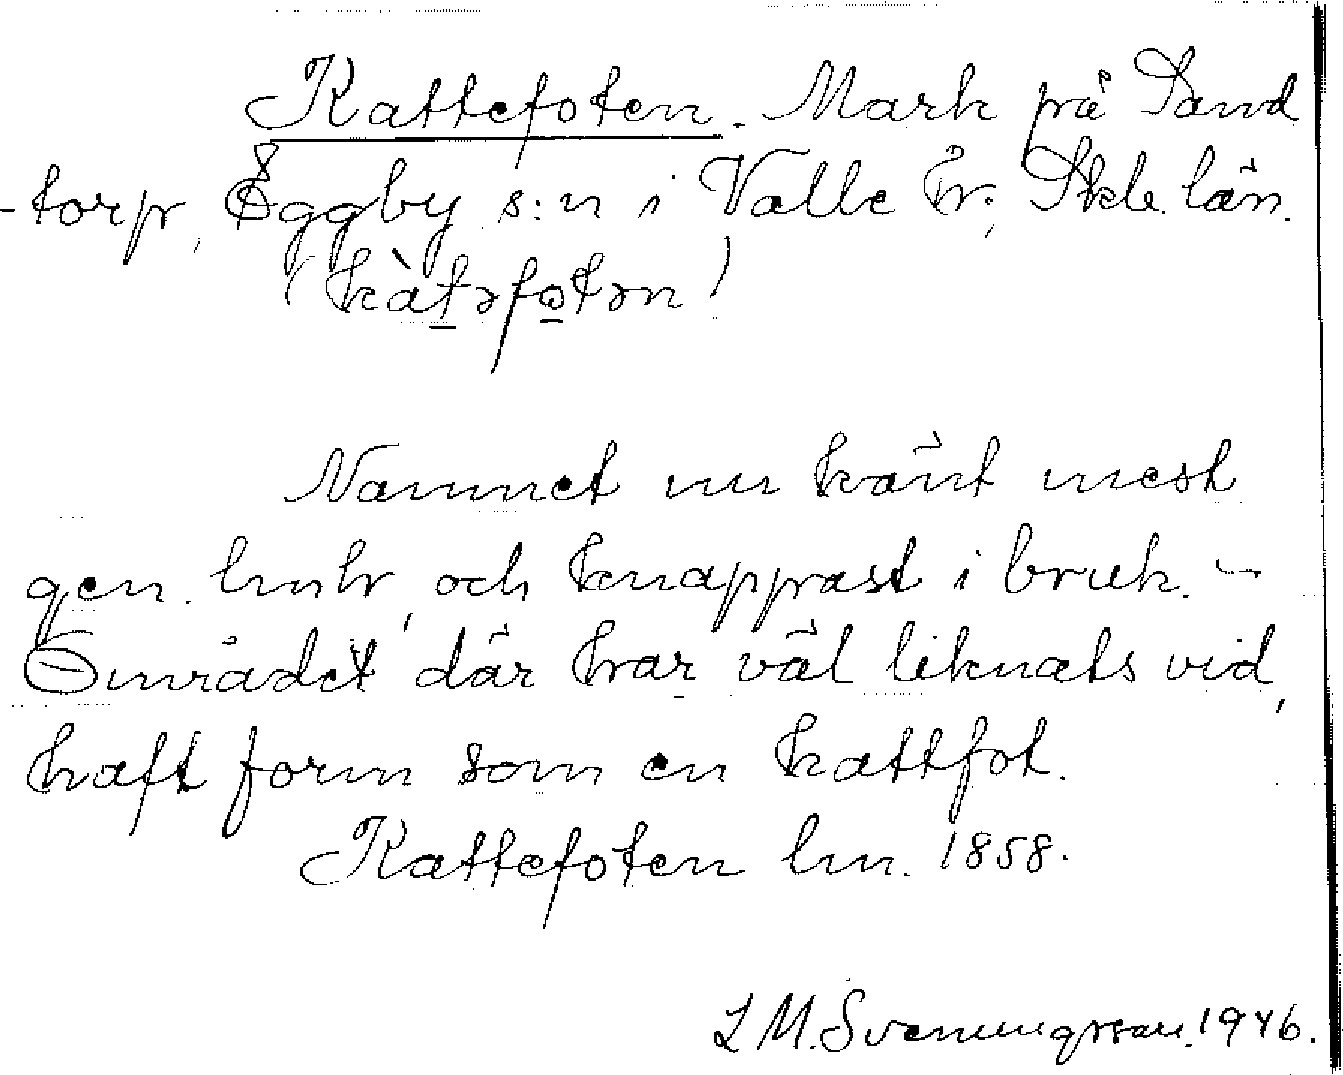 Kattefoten. Mark på Sand
-torp, Eggby s:n i Valle hr., Skb. län.
(kàtəfotən)
Namnet nu känt mest
gen. hnhr, och knappast i bruk. -
Området där har väl liknats vid,
haft form som en kattfot.
Kattefoten hn. 1858.
L M. Svenungsson. 1946.